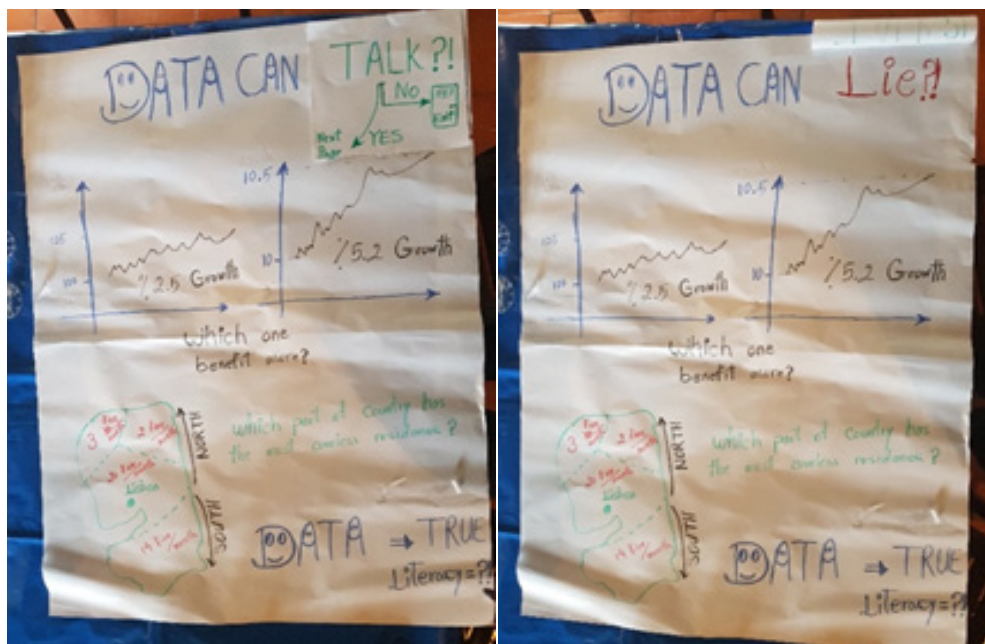 DATA CAN TALK?!
NO
YES
Next
Page
Exit
10.5
105
100
10
%2.5 Growth
%5.2 Growth
which one
benefit more?
which part of Country has
the most careless residence?
NORTH
SOUTH
3
2
Lisbon
DATA ⇒ TRUE
Literacy=?!
DATA CAN Lie?!
10.5
105
100
10
%2.5 Growth
%5.2 Growth
which one
benefit more?
which part of Country has
the most careless residence?
NORTH
SOUTH
3
2
Lisbon
DATA ⇒ TRUE
Literacy=?!